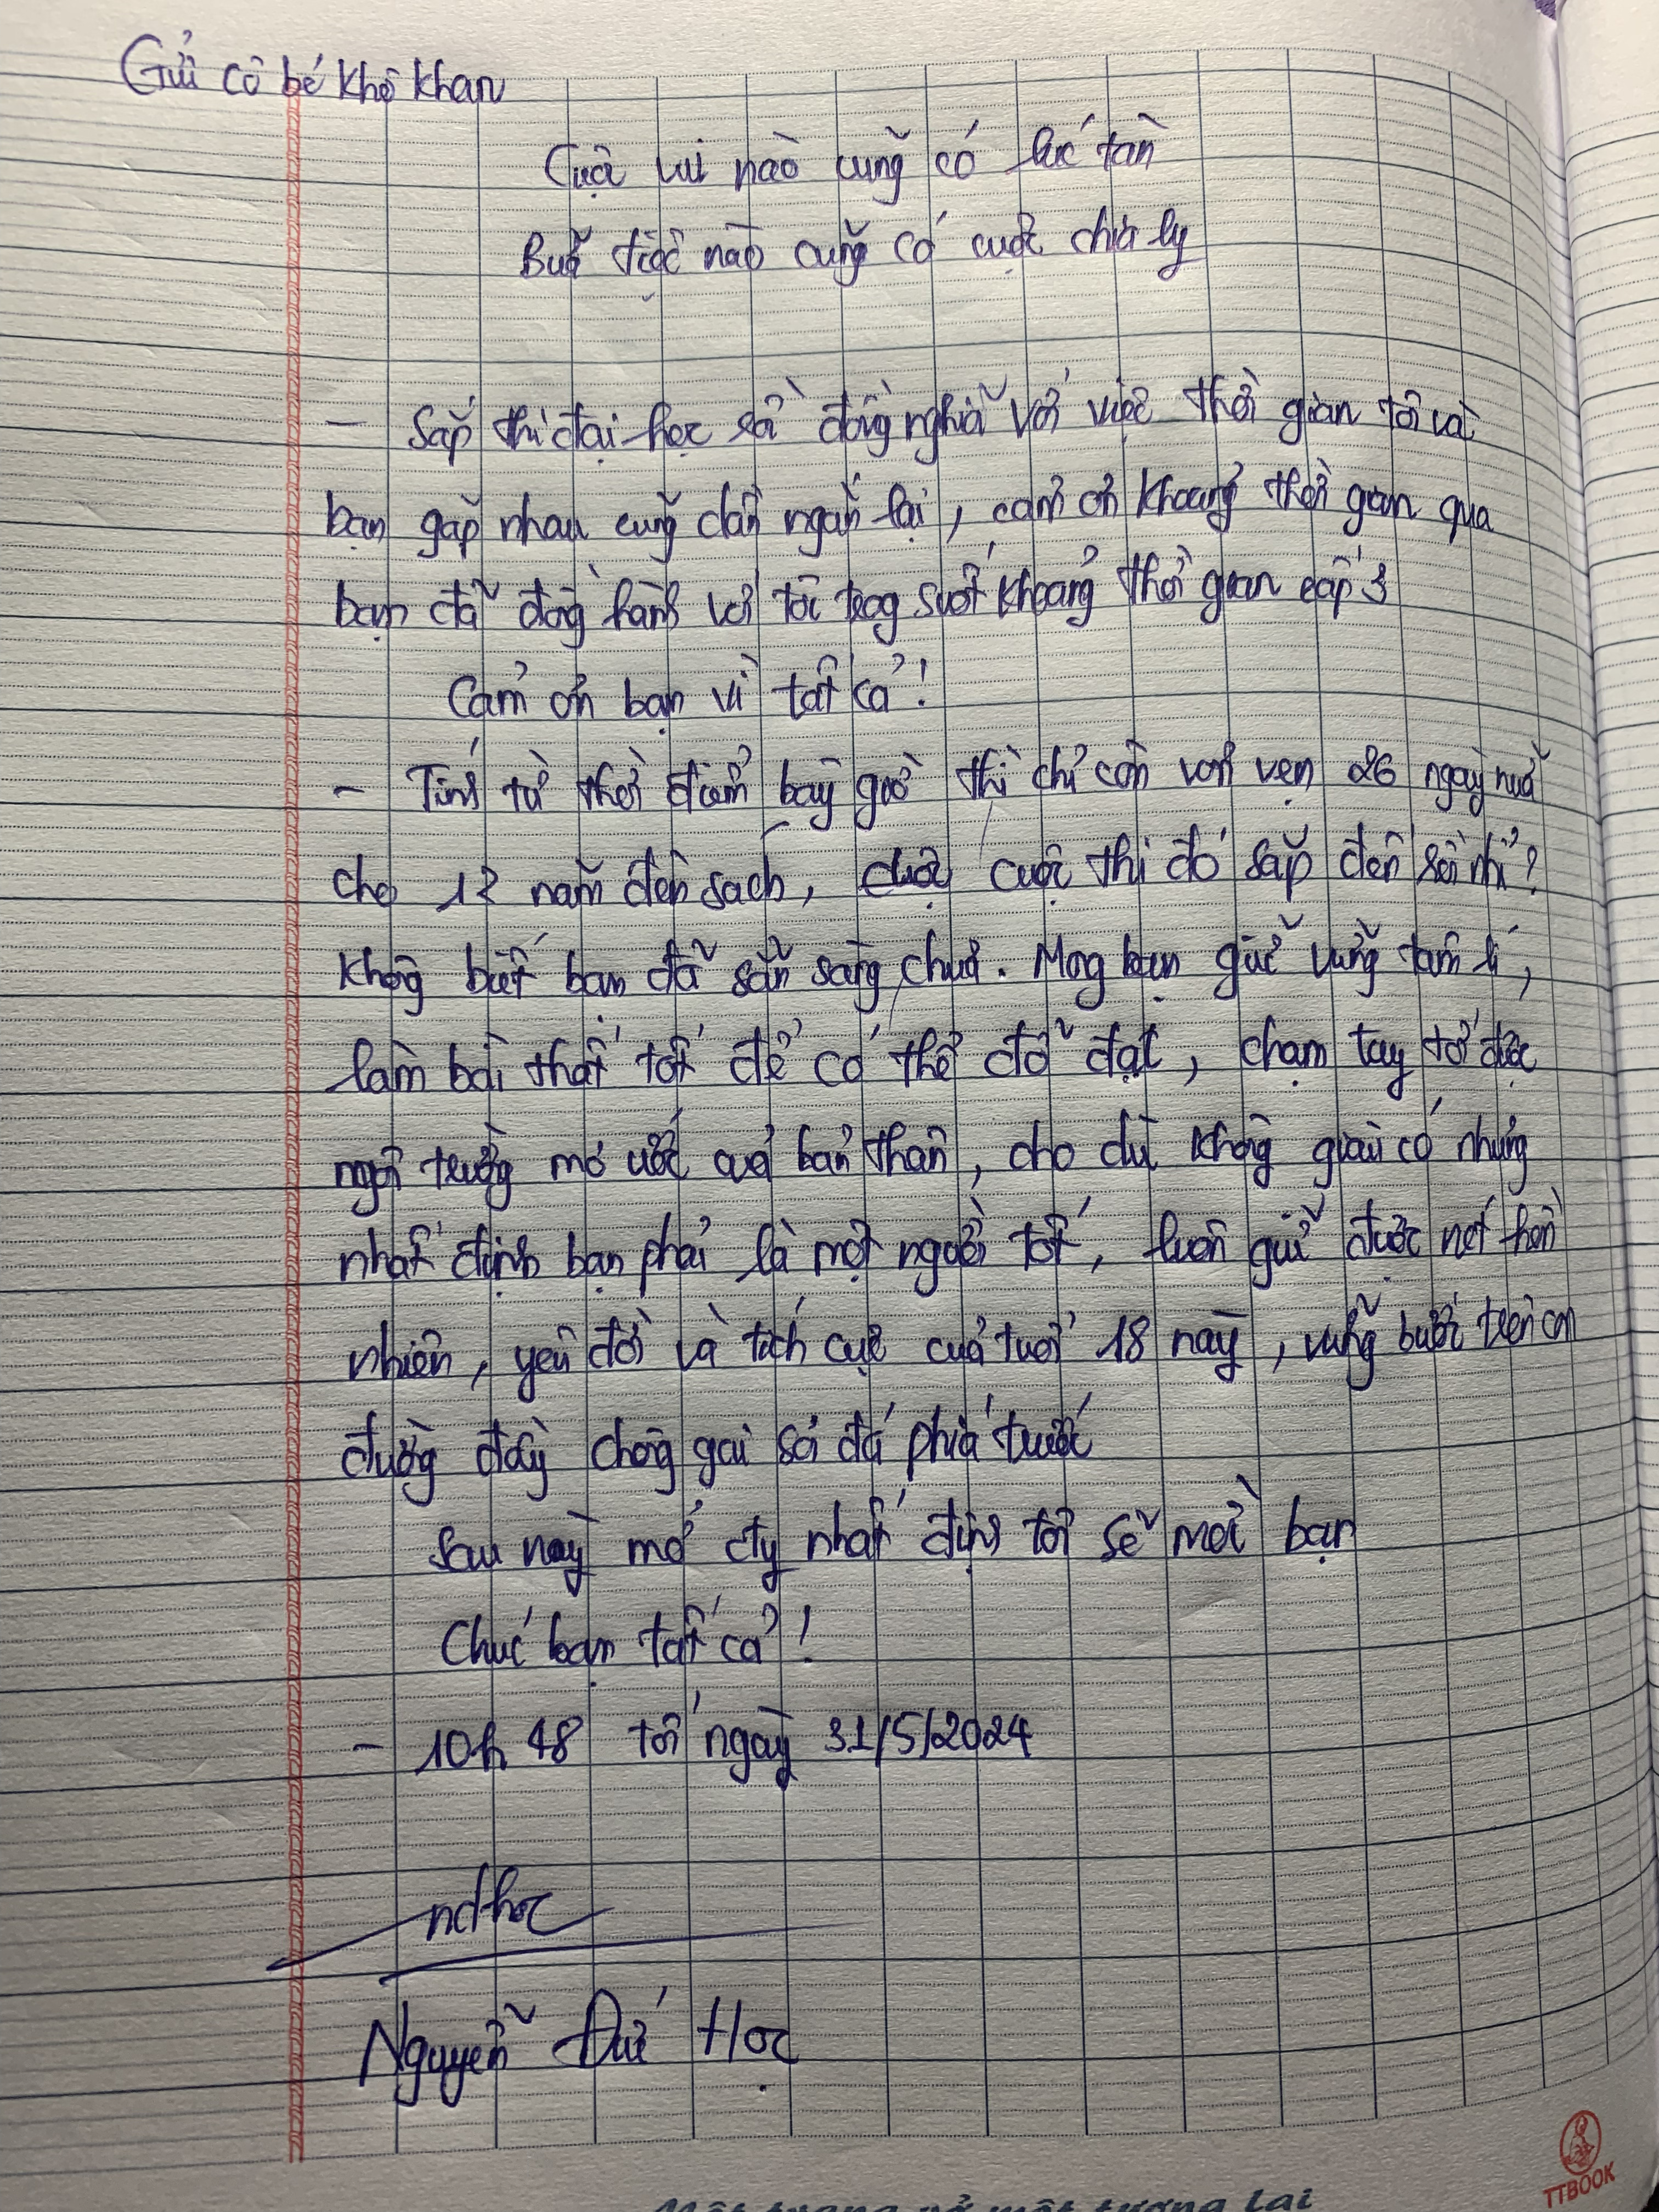 Gửi cô bé khô khan
Cuộc vui nào cũng có lúc tàn
Buổi tiệc nào cũng có cuộc chia ly
- Sắp thi đại học rồi đồng nghĩa với việc thời gian tôi và
bạn gặp nhau cũng dần ngắn lại, cảm ơn khoảng thời gian qua
bạn đã đồng hành với tôi trong suốt khoảng thời gian cấp 3
Cảm ơn bạn vì tất cả!
- Tính từ thời điểm bây giờ thì chỉ còn vỏn vẹn 26 ngày nữa
cho 12 năm đèn sách, cuộc thi đó sắp đến rồi nhỉ?
không biết bạn đã sẵn sàng chưa. Mong bạn giữ vững tâm lí,
làm bài thật tốt để có thể đỗ đạt, chạm tay tới được
ngôi trường mơ ước của bản thân, cho dù không giàu có nhưng
nhất định bạn phải là một người tốt, luôn giữ được nét hồn
nhiên, yêu đời và tích cực của tuổi 18 này, vững bước trên con
đường đầy chông gai sỏi đá phía trước
Sau này mở cty nhất định tôi sẽ mời bạn
Chúc bạn tất cả!
- 10h 48 tối ngày 31/5/2024
ndhoc
Nguyễn Đức Học
TTBOOK